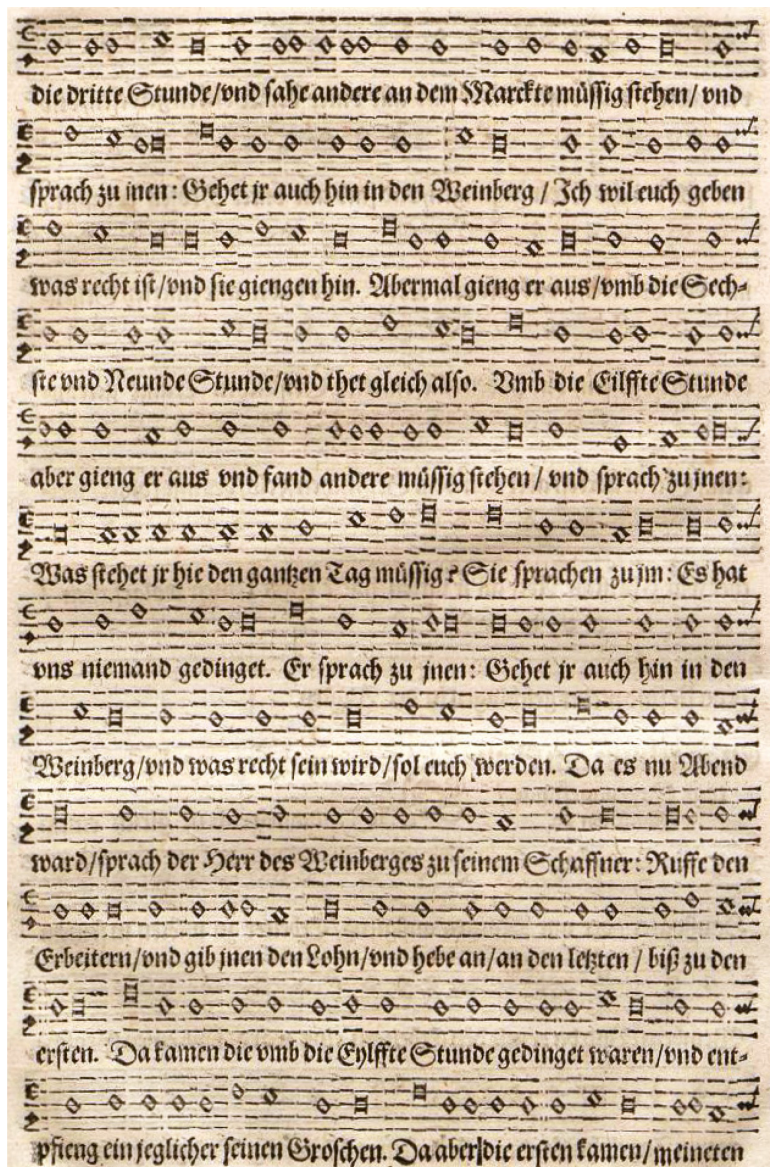 die dritte Stunde/vnd sahe andere an dem Marckte müssig stehen/ vnd
sprach zu inen: Gehet jr auch hin in den Weinberg / Ich wil euch geben
was recht ist/vnd sie giengen hin. Abermal gieng er aus/vmb die Sech-
ste vnd Neunde Stunde/vnd thet gleich also. Vmb die Eilffte Stunde
aber gieng er aus vnd fand andere müssig stehen / vnd sprach zu jnen:
Was stehet jr hie den gantzen Tag müssig? Sie sprachen zu jm: Es hat
vns niemand gedinget. Er sprach zu jnen: Gehet jr auch hin in den
Weinberg/vnd was recht sein wird/sol euch werden. Da es nu Abend
ward/sprach der Herr des Weinberges zu seinem Schaffner: Ruffe den
Erbeitern/vnd gib jnen den Lohn/vnd hebe an/an den letzten / biß zu den
ersten. Da kamen die vmb die Eylffte Stunde gedinget waren/vnd ent-
pfieng ein jeglicher seinen Groschen. Da aber die ersten kamen/meineten